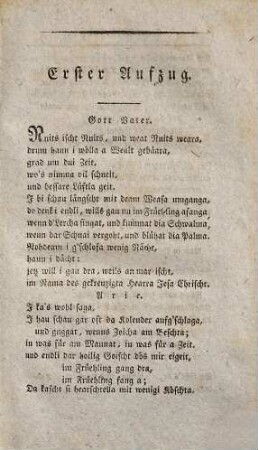 Erster Aufzug.
Gott Vater.
Nuits ischt Nuits, und weat Nuits weara,
drum hann i wölla a Wealt gebäara,
grad um dui Zeit,
wo's nimma vil schneit,
und bessare Lüftla geit.
I bi schau längscht mit deam Weasa umganga,
dr denki endli, wills gau na im Früehling afanga
wenn d'Lercha singat, und kuimmat dia Schwalma,
wenn dar Schnai vergoht, und blühat dia Palma.
Nohdeam i g'schlofa wenig Nächt,
hann i dächt:
jetz will i gau dra, weils an mar ischt,
im Nama des gekreuzigta Hearra Jesa Chrischt.
Arie.
J ka's wohl saga,
J hau schau gar oft da Kolender aufg'schlaga,
und guggat, wenns Zoicha am Beschta;
in was für am Maunat, in was für a Zeit.
und endli dar hoilig Goischt dhs mir eigeit,
im Früehling gang dra,
im Früehling fang a;
Da kascht si hearschtella mit wenigi Kbschta.